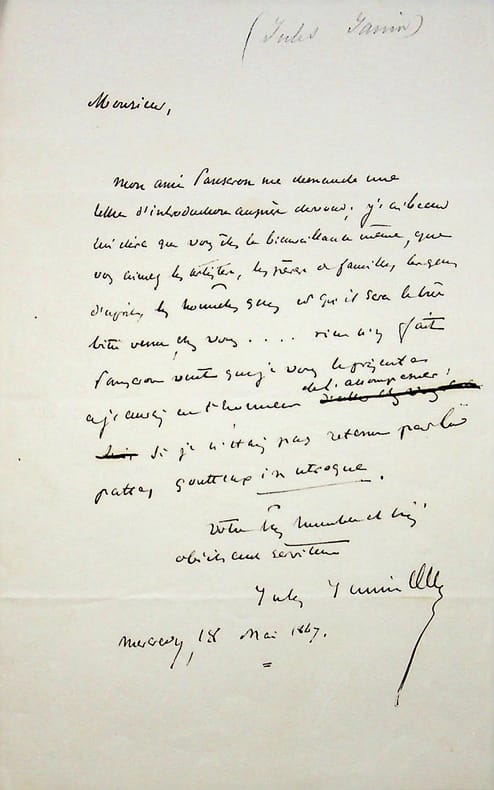 (Jules Janin)
Monsieur,
mon ami Panseron me demande une
lettre d'introduction auprès de vous; j'ai beau
lui dire que vous êtes la bienveillance même, que
vous aimez les artistes, les pères de familles, les gens
d'esprit, les honnêtes gens et qu'il sera le très
bien venu chez vous.... rien n'y fait
Panseron veut que je vous le présente
et j'aurais eu l'honneur de l'accompagner!
si je n'étais pas retenu par la
goutte in utroque.
Votre très humble et très
obéissant serviteur
Jules Janin
mercredy, 18 Mai 1847.